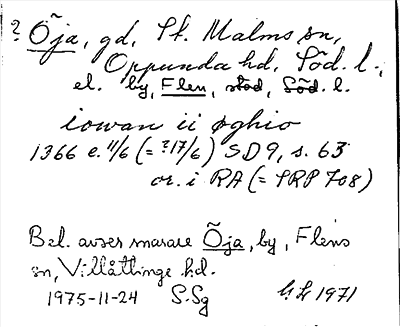 ? Õja, gd, St. Malms sn,
Oppunda hd, Söd. l.,
el. by, Flen, stad, Söd. l.
iowan ii øghio
1366 e. 11/6 (= ?17/6) SD 9, s. 63
or. i RA (= SRP 708)
Bel. avser snarare Õja, by, Flens
sn, Villåttinge hd.
1975-11-24 S.Sg 1971